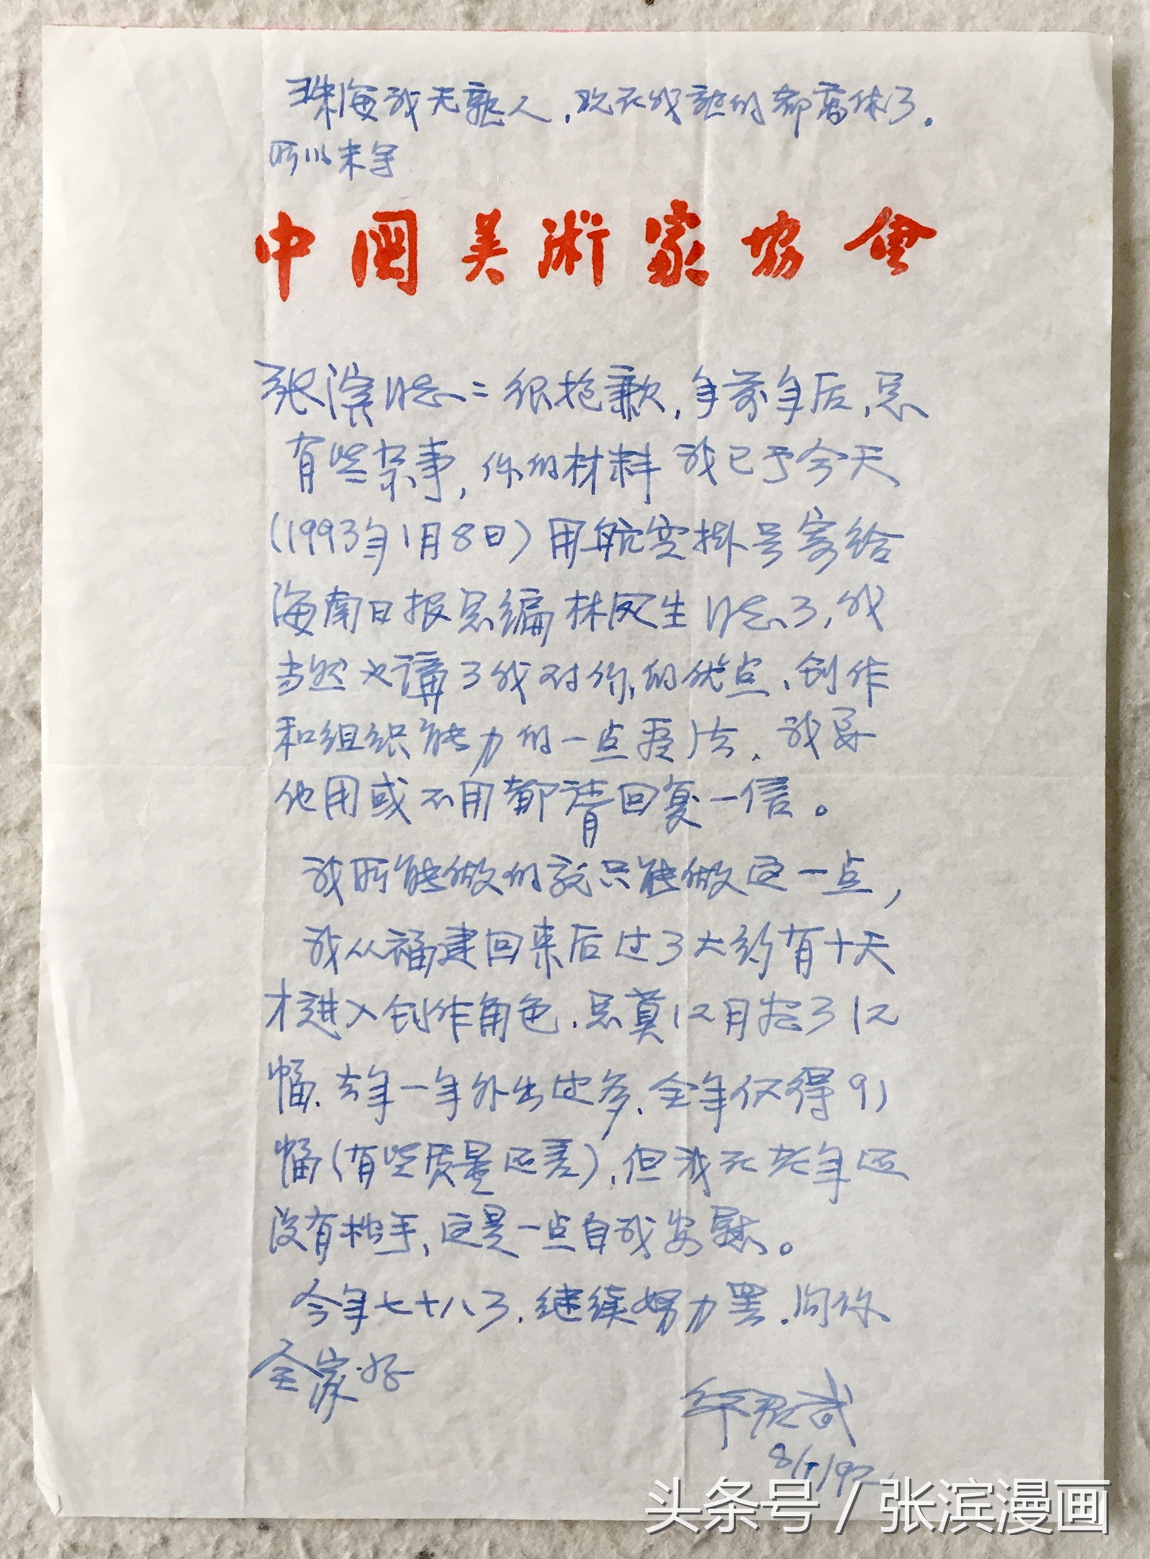 珠海我无熟人，现在我认的都离休了。
所以未写
中国美術家协会
张滨同志：很抱歉，年前年后，总
有些杂事，你的材料我已于今天
(1993年1月8日)用航空掛号寄给
海南日报总编林凤生同志了，我
当然也講了我对你的优点、创作
和组织能力的一点看法，我要
他用或不用都请回复一信。
我所能做的就只能做这一点，
我从福建回来后过了大约有十天
才进入创作角色，总算12月搞了12
幅，去年一年外出过多，全年仅得91
幅(有些质量还差)，但我在老年还
没有搁手，这是一点自我安慰。
今年七十八了，继续努力罢，问你
全家好
华君武
8/1/92
头条号 / 张滨漫画